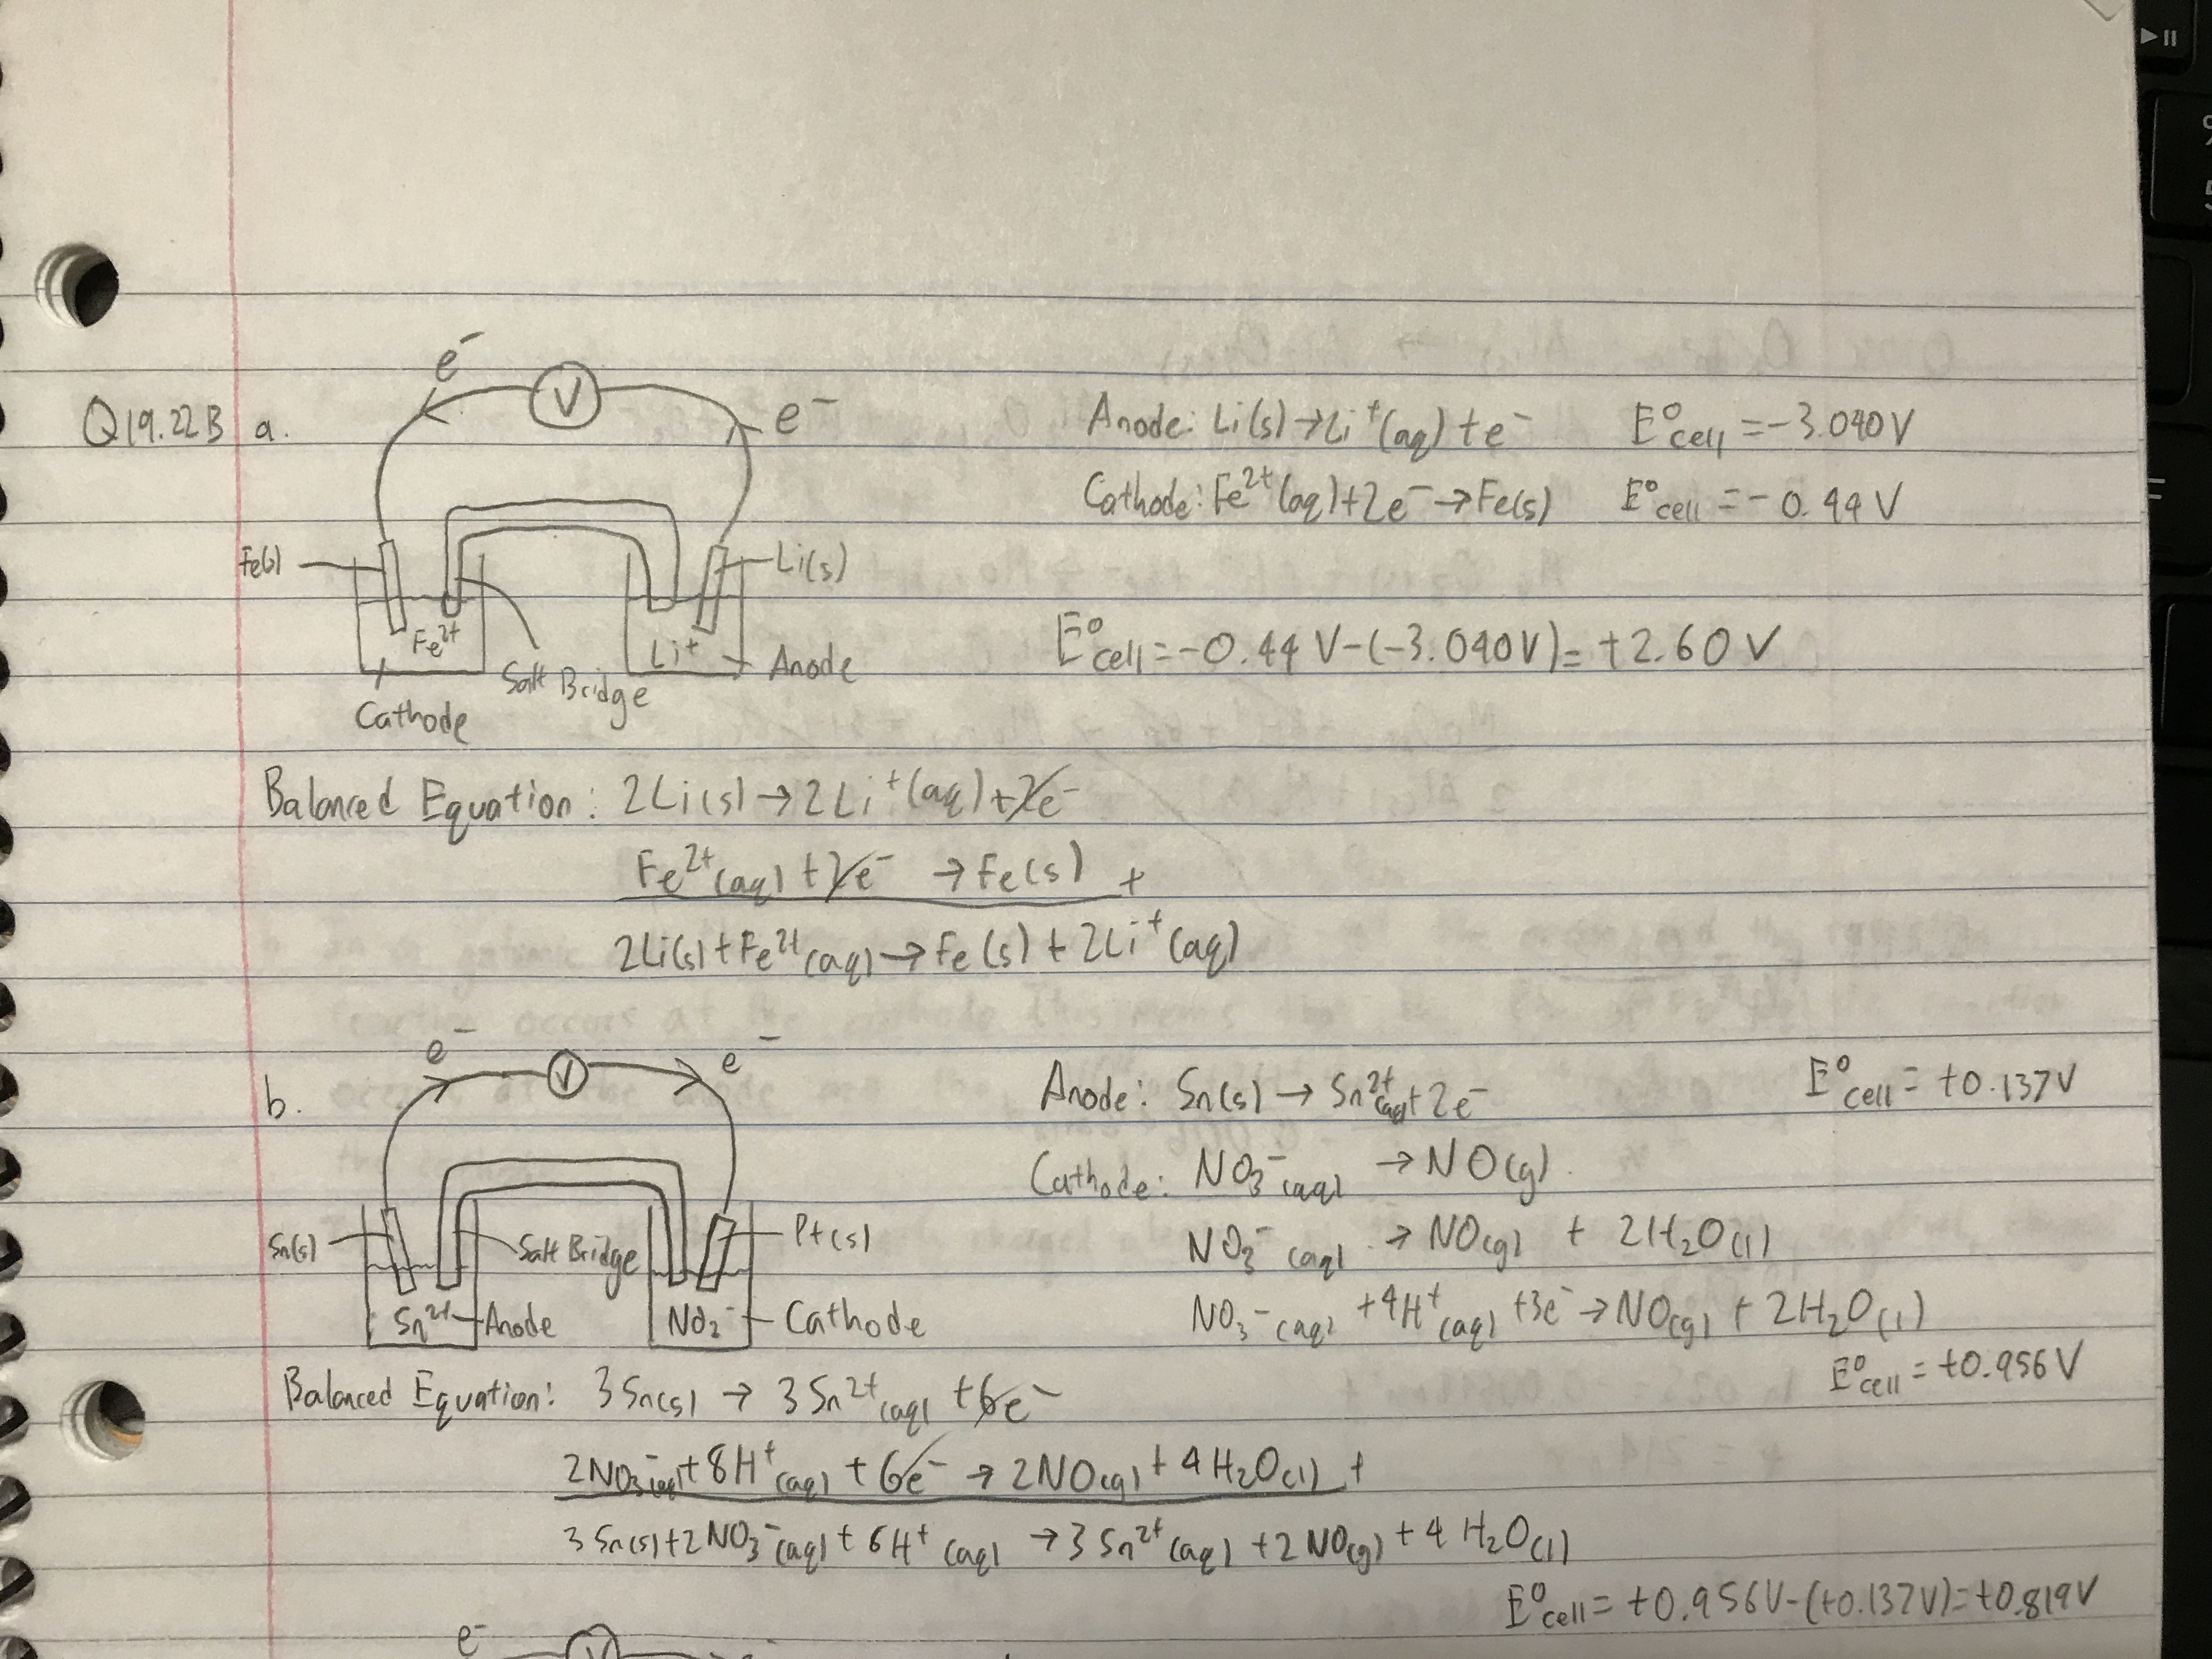 Q19.22B a.
e⁻
V
e⁻
Fe(s)
Li(s)
Fe²⁺
Li⁺
Salt Bridge
Anode
Cathode
Anode: Li(s) → Li⁺(aq) + e⁻ E°cell = -3.040 V
Cathode: Fe²⁺(aq) + 2e⁻ → Fe(s) E°cell = -0.44 V
E°cell = -0.44 V - (-3.040 V) = +2.60 V
Balanced Equation: 2Li(s) → 2Li⁺(aq) + 2e⁻
Fe²⁺(aq) + 2e⁻ → Fe(s) +
2Li(s) + Fe²⁺(aq) → Fe(s) + 2Li⁺(aq)
b.
e⁻
V
e⁻
Sn(s)
Salt Bridge
Pt(s)
Sn²⁺
Anode
NO₂⁻
Cathode
Anode: Sn(s) → Sn²⁺(aq) + 2e⁻ E°cell = +0.137 V
Cathode: NO₃⁻(aq) → NO(g)
NO₃⁻(aq) → NO(g) + 2H₂O(l)
NO₃⁻(aq) + 4H⁺(aq) + 3e⁻ → NO(g) + 2H₂O(l)
E°cell = +0.956 V
Balanced Equation: 3Sn(s) → 3Sn²⁺(aq) + 6e⁻
2NO₃⁻(aq) + 8H⁺(aq) + 6e⁻ → 2NO(g) + 4H₂O(l) +
3Sn(s) + 2NO₃⁻(aq) + 6H⁺(aq) → 3Sn²⁺(aq) + 2NO(g) + 4H₂O(l)
E°cell = +0.956V - (+0.137V) = +0.819V
e⁻
V